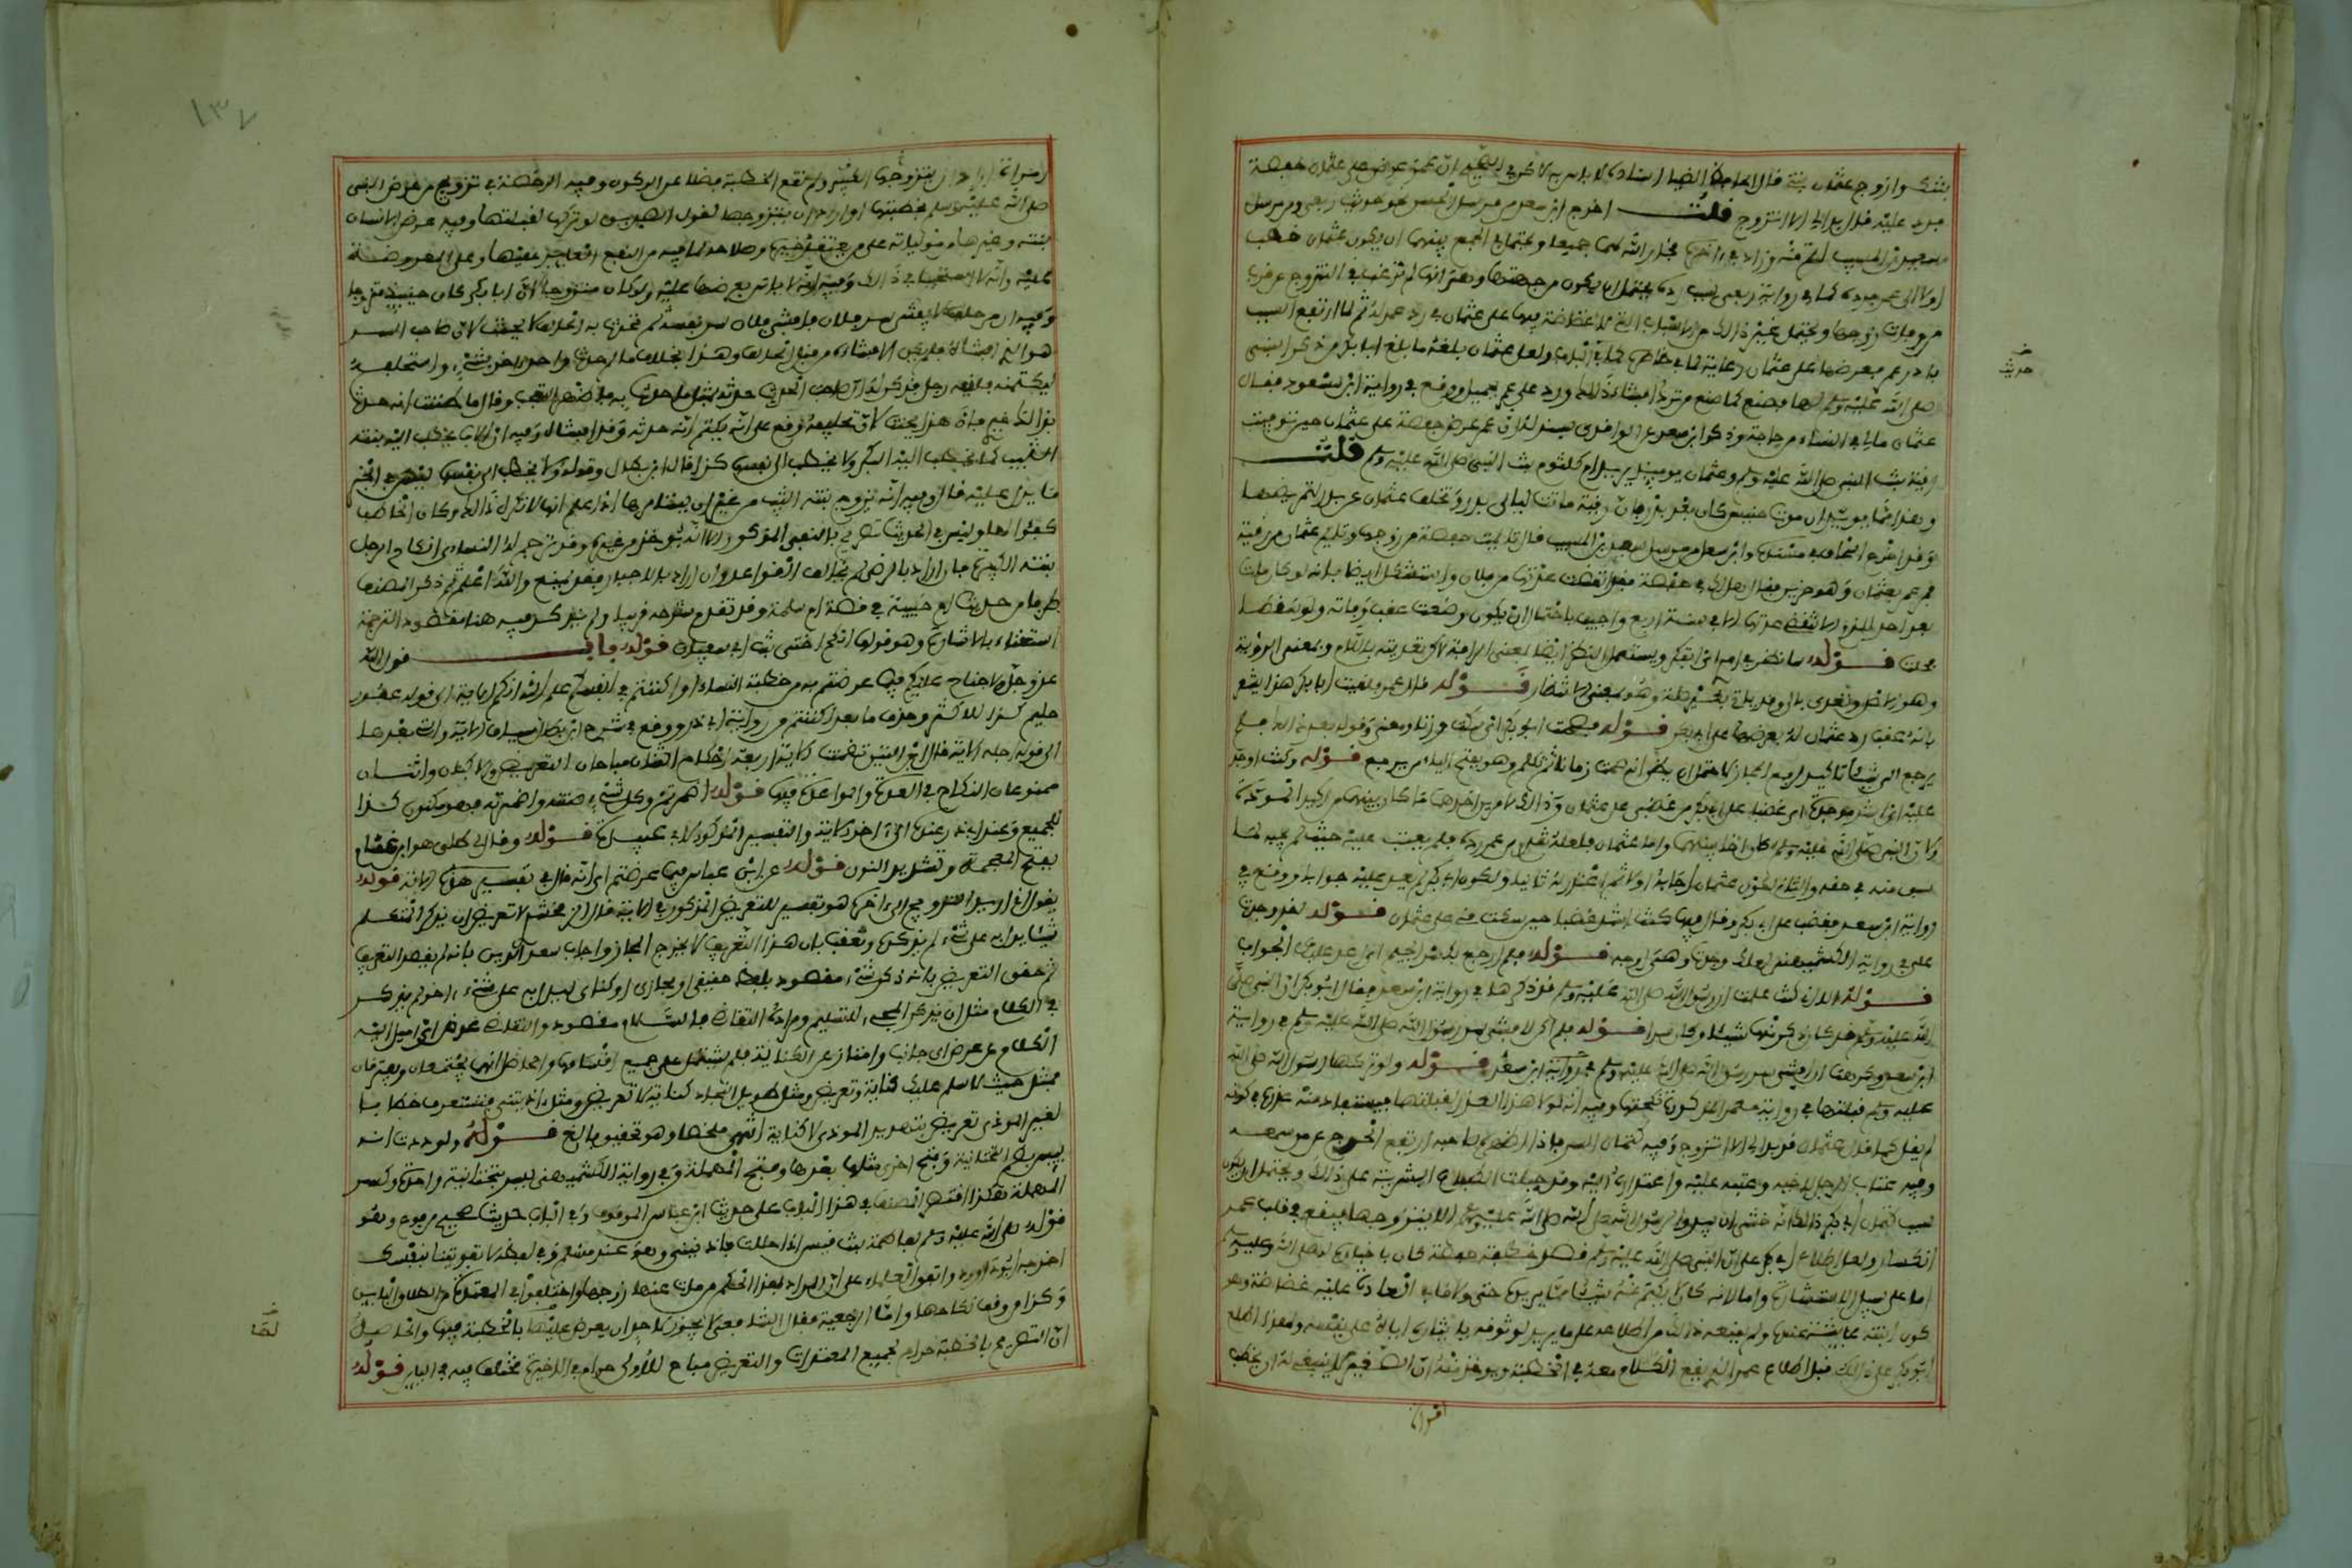 بنتك وازوج عثمان بنتي قال الحافظ الضيا اسناده لا باس به لاكن في الصحيح ان عمر عرض على عثمان حفصة
فرد عليه قد بدا لي الا اتزوج قلت اخرج ابن سعد من مرسل الحسن نحو حديث ربعي ومن مرسل
سعيد بن المسيب اتم منه وزاد في اخره فخار الله لهما جميعا ويحتمل في الجمع بينهما ان يكون عثمان خطب
اولا الى عمر فرده كما في رواية ربعي وسبب رده يحتمل ان يكون من جهتها وهي انها لم ترغب في التزوج عن قرب
من وفات زوجها ويحتمل غير ذالك من الاسباب التي لا غضاضة فيها على عثمان في رد عمر له ثم لما ارتفع السبب
بادر عمر فعرضها على عثمان رعاية لخاطره كما في الباب ولعل عثمان بلغه ما بلغ ابا بكر من ذكر النبي
صلى الله عليه وسلم لها فصنع كما صنع من ترك افشاء ذلك ورد على عمر بجميل ووقع في رواية ابن سعد فقال
عثمان مالي في النساء من حاجة وذكر ابن سعد عن الواقدي بسند له ان عمر عرض حفصة على عثمان حين توفيت
رقية بنت النبي صلى الله عليه وسلم وعثمان يومئذ يريد ام كلثوم بنت النبي صلى الله عليه وسلم قلت
وقد اخرج الحاكم في مستدركه وابن سعد من مرسل سعيد بن المسيب قال تايمت حفصة من زوجها وتايم عثمان من رقية
فمر عمر بعثمان وهو حزين فقال هل لك في حفصة فقد انقضت عدتها من فلان واستشكل ايضا بانه لو كان مات
بعد احد للزم الا تنقضي عدتها الا في سنة اربع واجيب باحتمال ان يكون وضعت عقب وفاته ولو سقطا
فحلت قوله سانظر في امري اي اتفكر ويستعمل النظر ايضا بمعنى الرافة لاكن تعديته باللام وبمعنى الروية
وهو الاصل ويعدى بالى وقد ياتي بغير صلة وهو بمعنى الانتظار قوله قال عمر فلقيت ابا بكر هذا يشعر
بانه عقب رد عثمان له بعرضها على ابي بكر قوله فصمت ابو بكر اي سكت وزنا ومعنى وقوله بعد ذالك فلم
يرجع الي شيئا تاكيد لرفع المجاز لاحتمال ان يظن انه صمت زمانا ثم تكلم وهو بفتح الياء من يرجع قوله وكنت اوجد
عليه اي اشد موجدة اي غضبا على ابي بكر من غضبي على عثمان وذالك لامرين احدهما ما كان بينهما من اكيد المودة
ولان النبي صلى الله عليه وسلم كان اخى بينهما واما عثمان فلعله تقدم من عمر رده فلم يعتب عليه حيث لم يجبه لما
سبق منه في حقه والثاني لكون عثمان اجابه اولا ثم اعتذر له ثانيا ولكون ابي بكر لم يعد عليه جوابا ووقع في
رواية ابن سعد فغضب على ابي بكر وقال فيها كنت اشد غضبا حين سكت مني على عثمان قوله لقد وجدت
علي في رواية الكشميهني لعلك وجدت وهي اوجه قوله فلم ارجع بكسر الجيم اي اعد عليك الجواب
قوله الا اني كنت علمت ان رسول الله صلى الله عليه وسلم قد ذكرها في رواية ابن سعد فقال ابو بكر ان النبي صلى
الله عليه وسلم قد كان ذكر منها شيئا وكان سرا قوله فلم اكن لافشي سر رسول الله صلى الله عليه وسلم في رواية
ابن سعد وكرهت ان افشي سر رسول الله صلى الله عليه وسلم قوله ولو تركها رسول الله صلى الله
عليه وسلم قبلتها في رواية معمر المذكورة نكحتها وفيه انه لولا هذا العذر لقبلتها فيستفاد منه عذره في كونه
لم يقل كما قال عثمان قد بدا لي الا اتزوج وفيه كتمان السر فاذا اظهره صاحبه ارتفع الحرج عن من سمعه
وفيه عتاب الرجل لاخيه وعتبه عليه واعتذاره اليه وقد جبلت الطباع البشرية على ذالك ويحتمل ان يكون
سبب كتمان ابي بكر ذالك انه خشي ان يبدو لرسول الله صلى الله عليه وسلم الا يتزوجها فيقع في قلب عمر
انكسار ولعل اطلاع ابي بكر على ان النبي صلى الله عليه وسلم قصد خطبة حفصة كان باخباره له صلى الله عليه وسلم
اما على سبيل الاستشارة واما لانه كان لا يكتم عنه شيئا مما يريده حتى ولا ما في العادة عليه غضاضة وهو
كون ابنته عايشة عنده ولم يمنعه ذالك من اطلاعه على ما يريد لوثوقه بايثاره اياه على نفسه ولهذا اطلع
ابو بكر على ذالك قبل اطلاع عمر الذي يقع الكلام معه في الخطبة ويوخذ منه ان الصغير لا ينبغي له ان يخطب
امراة
حديث
١٣٧
امراة اراد ان يتزوجها الكبير ولو لم تقع الخطبة فضلا عن الركون وفيه الرخصة في تزويج من عرض النبي
صلى الله عليه وسلم بخطبتها او اراد ان يتزوجها لقول الصديق لو تركها لقبلتها وفيه عرض الانسان
بنته وغيرها من مولياته على من يعتقد خيره وصلاحه لما فيه من النفع العايد على المعروضة
عليه وانه لا استحيا في ذالك وفيه انه لا باس بعرضها عليه ولو كان متزوجا لان ابا بكر كان حينئذ متزوجا
وفيه ان من حلف لا يفشي سر فلان فافشى فلان سر نفسه ثم تحدث به الحالف لا يحنث لان صاحب السر
هو الذي افشاه فلم يكن الافشاء من قبل الحالف وهذا بخلاف ما لو حدث واحد اخر بشيء واستحلفه
ليكتمنه فلقيه رجل فذكر له ان صاحب الحديث حدثه بمثل ما حدثه به فاظهر التعجب وقال ما ظننت انه حدث
بذالك غيري فان هذا يحنث لان تحليفه وقع على انه يكتم انه حدثه وقد افشاه وفيه ان الاب يخطب اليه بنته
الثيب كما يخطب اليه البكر ولا يخطب الى نفسها كذا قال ابن بطال وقوله ولا يخطب الى نفسها ليس في الخبر
ما يدل عليه قال وفيه انه يزوج بنته الثيب من غير ان يستامرها اذا علم انها لا تكره ذالك وكان الخاطب
كفئا لها وليس في الحديث تصريح بالنفي المذكور الا انه يوخذ من غيره وقد ترجم له النساءي انكاح الرجل
بنته الكبيرة فان اراد بالرضى لم يخالف القواعد وان اراد بالاجبار فقد يمنع والله اعلم ثم ذكر المصنف
طرفا من حديث ام حبيبة في قصة ام سلمة وقد تقدم شرحه قريبا ولم يذكر فيه هنا مقصود الترجمة
استغناء بالاشارة وهو قولها انكح اختي بنت ابي سفيان قوله باب قول الله
عز وجل ولا جناح عليكم فيما عرضتم به من خطبة النساء او اكننتم في انفسكم علم الله انكم الاية الى قوله غفور
حليم كذا للاكثر وحذف ما بعد اكننتم من رواية ابي ذر ووقع في شرح ابن بطال سياق الاية والتي بعدها
الى قوله اجله الاية قال ابن التين تضمنت الاية اربعة احكام اثنان مباحان التعريض والاكنان واثنان
ممنوعان النكاح في العدة والمواعدة فيها قوله اضمرتم وكل شيء صنته واضمرته فهو مكنون كذا
للجميع وعند ابي ذر بعده الى اخر الاية والتفسير المذكور لابي عبيدة قوله وقال لي طلق هو ابن غنام
بفتح المعجمة وتشديد النون قوله عن ابن عباس فيما عرضتم اي انه قال في تفسير هذه الاية قوله
يقول اني اريد التزويج الى اخره هو تفسير للتعريض المذكور في الاية قال الزمخشري التعريض ان يذكر المتكلم
شيئا يدل به على شيء لم يذكره وتعقب بان هذا التعريف لا يخرج المجاز واجاب سعد الدين بانه لم يقصد التعريف
ثم حقق التعريض بانه ذكر شيء مقصود بلفظ حقيقي او مجازي او كناي ليدل به على شيء اخر لم يذكر
في الكلام مثل ان يذكر المجيء للتسليم ومراده التقاضي فالسلام مقصود والتقاضي عرض اي اميل اليه
الكلام عن عرض اي جانب وامتاز عن الكناية فلم يشتمل على جميع اقسامها والحاصل انهما يجتمعان ويفترقان
فمثل جيت لاسلم عليك كناية وتعريض ومثل طويل النجاد كناية لا تعريض ومثل اذيتني فستعرف خطابا
لغير الموذي تعريض بتهديد الموذي لا كناية انتهى ملخصا وهو تحقيق بالغ قوله ولوددت انه
ييسر بضم التحتانية وفتح اخرى مثلها بعدها وفتح المهملة وفي رواية الكشميهني يسر بتحتانية واحدة وكسر
المهملة هكذا اقتصر المصنف في هذا الباب على حديث ابن عباس الموقوف وفي الباب حديث صحيح مرفوع وهو
قوله صلى الله عليه وسلم لفاطمة بنت قيس اذا حللت فاذنيني وهو عند مسلم وفي لفظ لا تفوتينا بنفسك
اخرجه ابو داوود واتفق العلماء على ان المراد بهذا الحكم من مات عنها زوجها واختلفوا في المعتدة من الطلاق البائن
وكذا من وقف نكاحها واما الرجعية فقال الشافعي لا يجوز لاحد ان يعرض عليها بالخطبة فيها والحاصل
ان التصريح بالخطبة حرام لجميع المعتدات والتعريض مباح للاولى حرام في الاخيرة مختلف فيه في البائن قوله